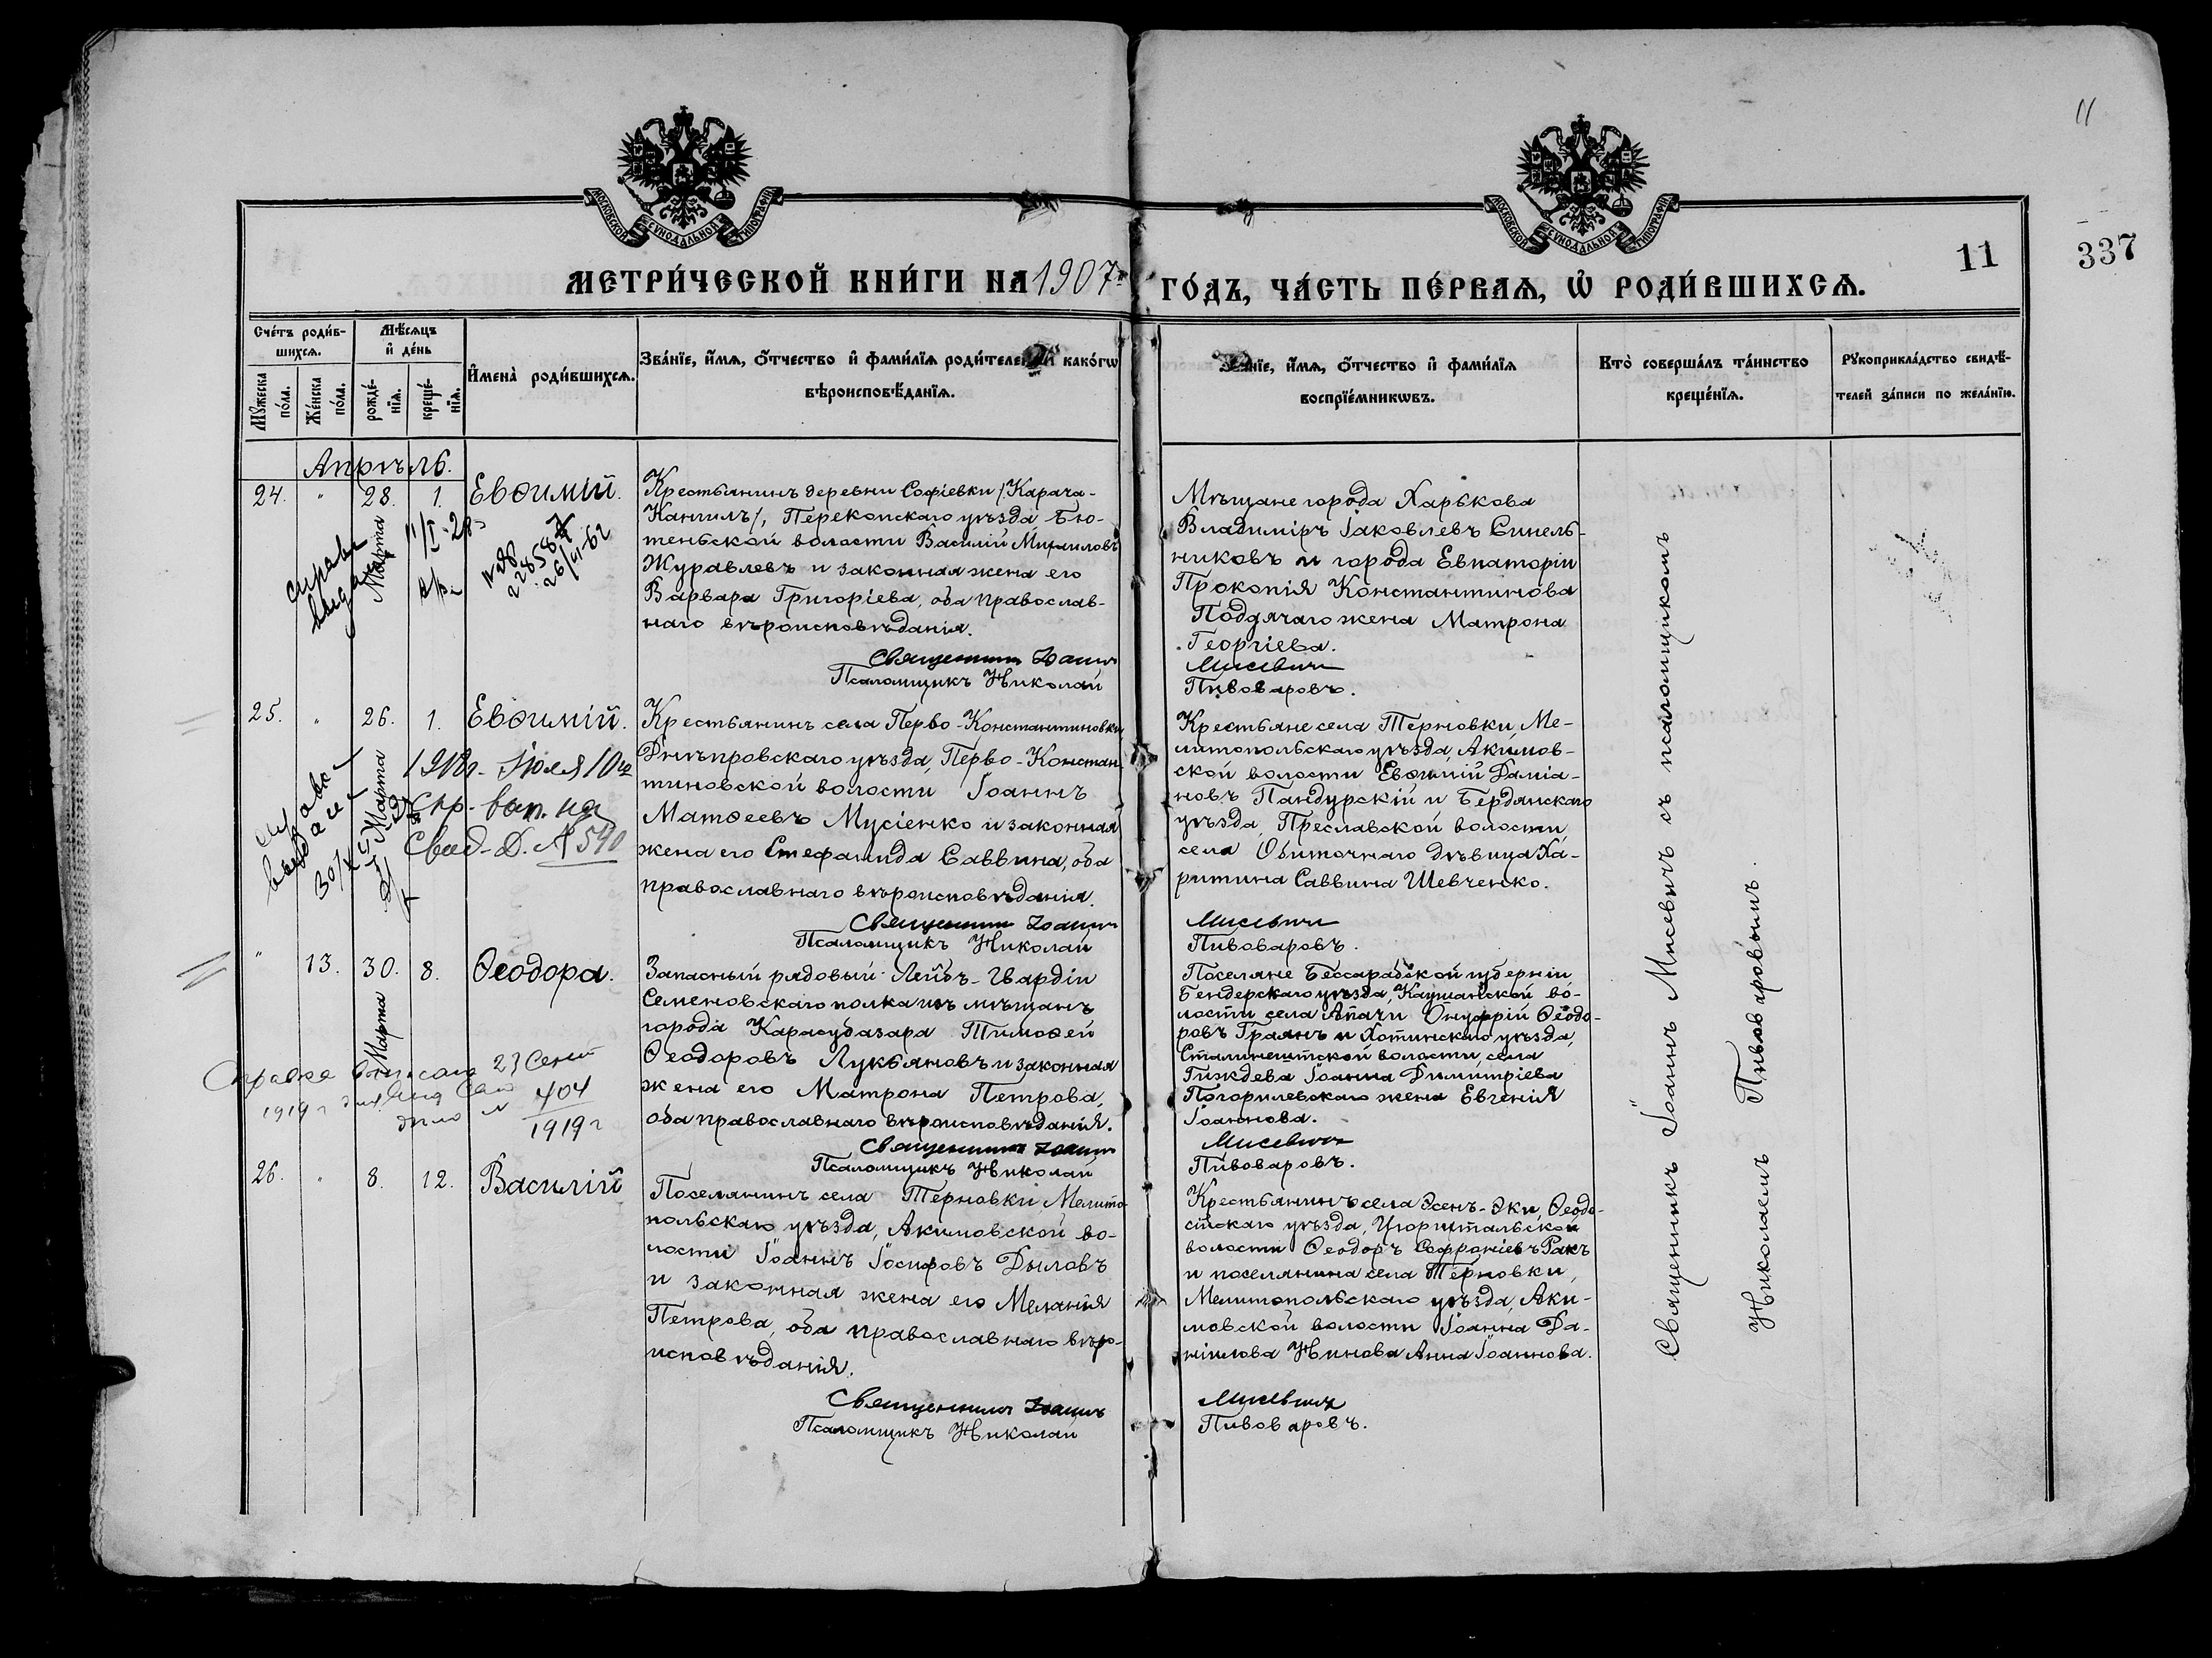 11
МОСКОВСКОЙ СѴНОДАЛЬНОЙ ТИПОГРАФІИ
МОСКОВСКОЙ СѴНОДАЛЬНОЙ ТИПОГРАФІИ
МЕТРИ́ЧЕСКОЙ КНИ́ГИ НА 1907 ГО́ДЪ, ЧА́СТЬ ПЕ́РВАѦ, Ѡ҆ РОДИ́ВШИХСѦ.
11
337
Сче́тъ роди́в-
шихсѧ.
Мꙋ́жеска по́ла.
Же́нска по́ла.
Мѣ́сѧцъ
и҆ де́нь
рожде́-
нїѧ.
креще́-
нїѧ.
И҆мена̀ роди́вшихсѧ.
Зва́нїе, и҆́мѧ, ѻ҆́тчество и҆ фами́лїѧ роди́телей и҆ како́гѡ
вѣроисповѣ́данїѧ.
нїе, и҆́мѧ, ѻ҆́тчество и҆ фами́лїѧ
воспрїе́мникѡвъ.
Кто̀ соверша́лъ та́инство
креще́нїѧ.
Рꙋкоприкла́дство свидѣ́-
телей за́писи по жела́нїю.
Апрѣль.
24. " 28. 1. Евѳимій.
Марта
справк
выдана
№98
228587
26/VI-62
Крестьянинъ деревни Софіевки /Карача-
Кангилъ/, Перекопскаго уѣзда, Бю-
теньской волости Василій Михаиловъ
Журавлевъ и законная жена его
Варвара Григоріева, оба православ-
наго вѣроисповѣданія.
Священникъ Іоаннъ
Псаломщикъ Николай
Мѣщане города Харькова
Владиміръ Іаковлевъ Синель-
никовъ и города Евпаторіи
Прокопія Константинова
Подгачаго жена Матрона
Георгіева.
Мисевичъ
Пивоваровъ.
25. " 26. 1. Евѳимій.
Марта
1918г. Іюля 10го
Спр. вып. на
Свад. Д. № 540
Крестьянинъ села Перво-Константиновки
Днѣпровскаго уѣзда, Перво-Констан-
тиновской волости Іоаннъ
Матѳеевъ Мусіенко и законная
жена его Стефанида Саввина, оба
православнаго вѣроисповѣданія.
Священникъ Іоаннъ
Псаломщикъ Николай
Крестьяне села Терновки, Ме-
литопольскаго уѣзда, Акимов-
ской волости Евѳимій Даміа-
новъ Пандурскій и Бердянскаго
уѣзда, Преславской волости,
села Обиточнаго дѣвица Ха-
ритина Саввина Шевченко.
Мисевичъ
Пивоваровъ.
" 13. 30. 8. Ѳеодора.
Марта
Справка выписана 23 Сент
1919 г
дѣло № 404
1919 г
Запасный рядовый Лейбъ-Гвардіи
Семеновскаго полка изъ мѣщанъ
города Карасубазара Тимоѳей
Ѳеодоровъ Лукьяновъ и законная
жена его Матрона Петрова,
оба православнаго вѣроисповѣданія.
Священникъ Іоаннъ
Псаломщикъ Николай
Поселяне Бессарабской губерніи
Бендерскаго уѣзда, Каушанской во-
лости села Опачи Онуфрій Ѳеодо-
ровъ Граянъ и Хотинскаго уѣзда,
Сталинештской волости, села
Гиждева Іоанна Димитріева
Погорилевскаго жена Евгенія
Іоаннова.
Мисевичъ
Пивоваровъ.
26. " 8. 12. Василій
Поселянинъ села Терновки, Мелито-
польскаго уѣзда, Акимовской во-
лости Іоаннъ Іосифовъ Дыловъ
и законная жена его Меланія
Петрова, оба православнаго вѣро-
исповѣданія.
Священникъ Іоаннъ
Псаломщикъ Николай
Крестьянинъ села Эсенъ-Эки, Ѳеодо-
сійскаго уѣзда, Цюрихтальской
волости Ѳеодоръ Софроніевъ Ракъ
и поселянина села Терновки,
Мелитопольскаго уѣзда, Аки-
мовской волости Іоанна Да-
ніилова Нинова Анна Іоаннова.
Мисевичъ
Пивоваровъ.
Священникъ Іоаннъ Мисевичъ съ псаломщикомъ
Николаемъ Пивоваровымъ.